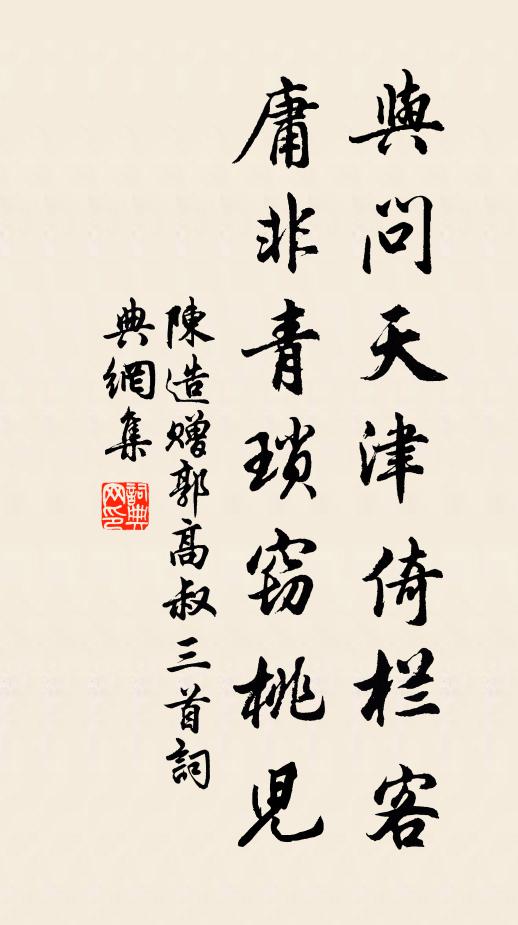 與問天津倚栏客
庸非青瑣窃桃児
陳造赠郭高叔三首詞
典網集
詞典网印